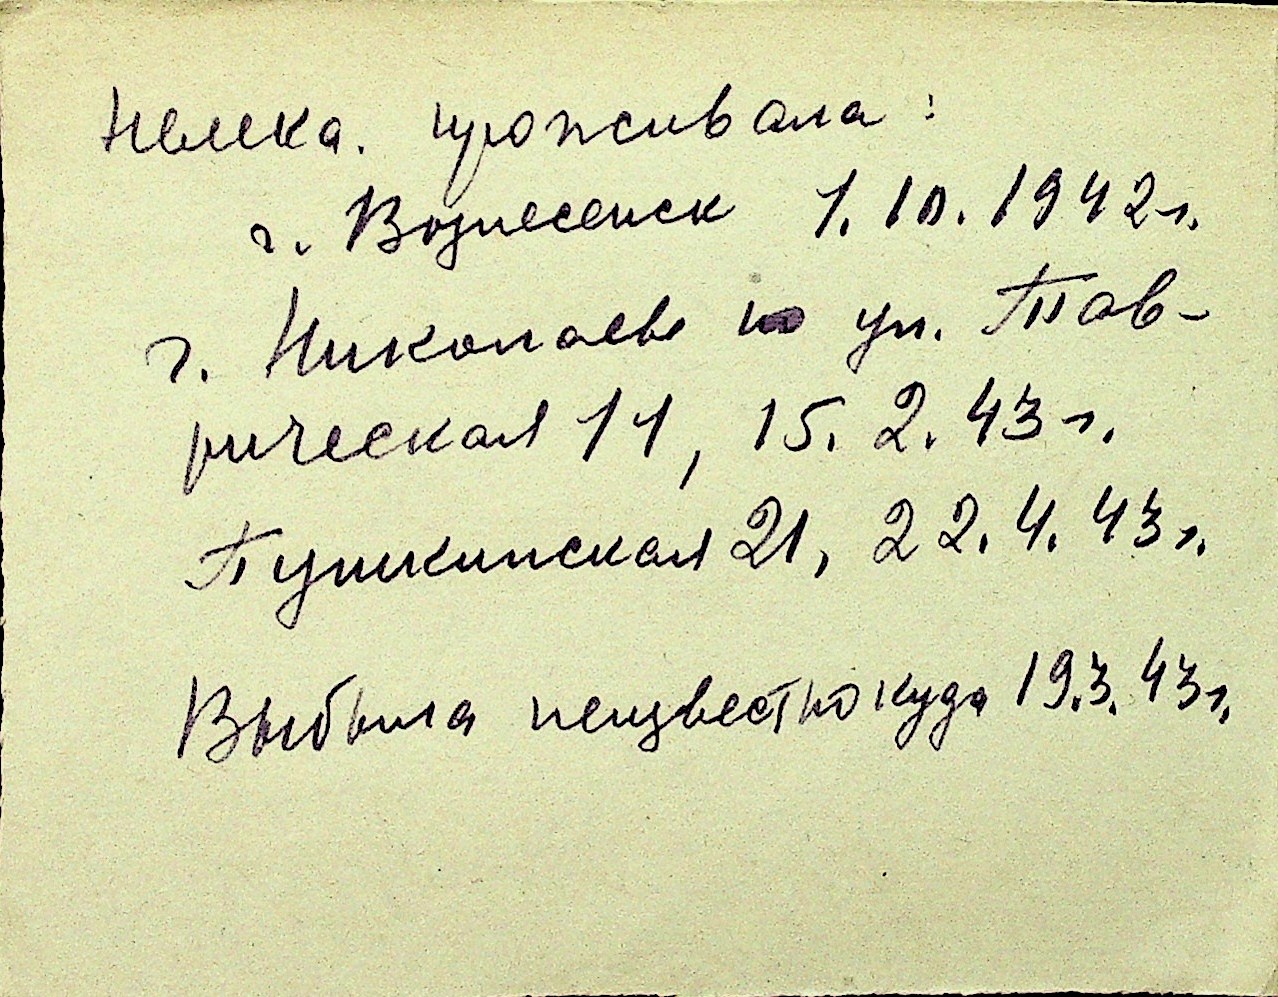 Немка. проживала:
г. Вознесенск 1.10.1942г.
г. Николаев ул. Тав-
рическая 11, 15.2.43г.
Пушкинская 21, 22.4.43г.
Выбыла неизвестно куда 19.3.43г.